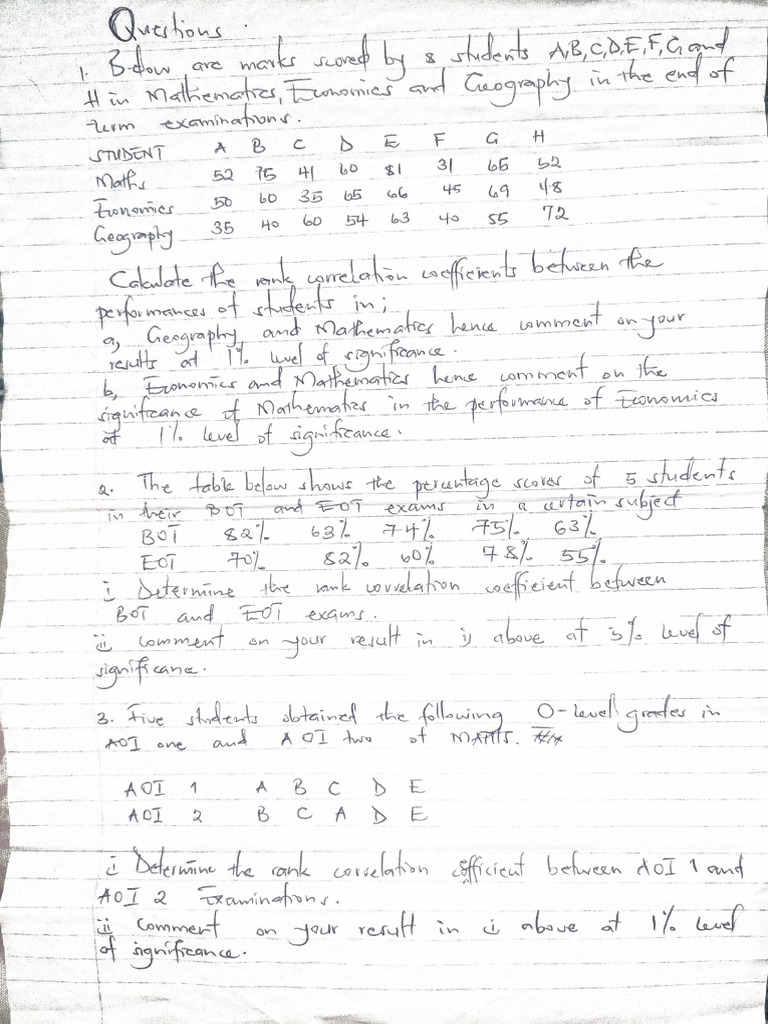 Questions.
1. Below are marks scored by 8 students A,B,C,D,E,F,G and
H in Mathematics, Economics and Geography in the end of
term examinations.
STUDENT A B C D E F G H
Maths 52 75 41 60 81 31 65 52
Economics 50 60 35 65 66 45 69 48
Geography 35 40 60 54 63 40 55 72
Calculate the rank correlation coefficients between the
performances of students in;
a, Geography and Mathematics hence comment on your
results at 1% level of significance.
b, Economics and Mathematics hence comment on the
significance of Mathematics in the performance of Economics
at 1% level of significance.
2. The table below shows the percentage scores of 5 students
in their BOT and EOT exams in a certain subject
BOT 82% 63% 74% 75% 63%
EOT 70% 82% 60% 78% 55%
i Determine the rank correlation coefficient between
BOT and EOT exams.
ii comment on your result in i) above at 5% level of
significance.
3. Five students obtained the following O-level grades in
AOI one and AOI two of MATHS.
AOI 1 A B C D E
AOI 2 B C A D E
i Determine the rank correlation cofficient between AOI 1 and
AOI 2 Examinations.
ii Comment on your result in i above at 1% level
of significance.